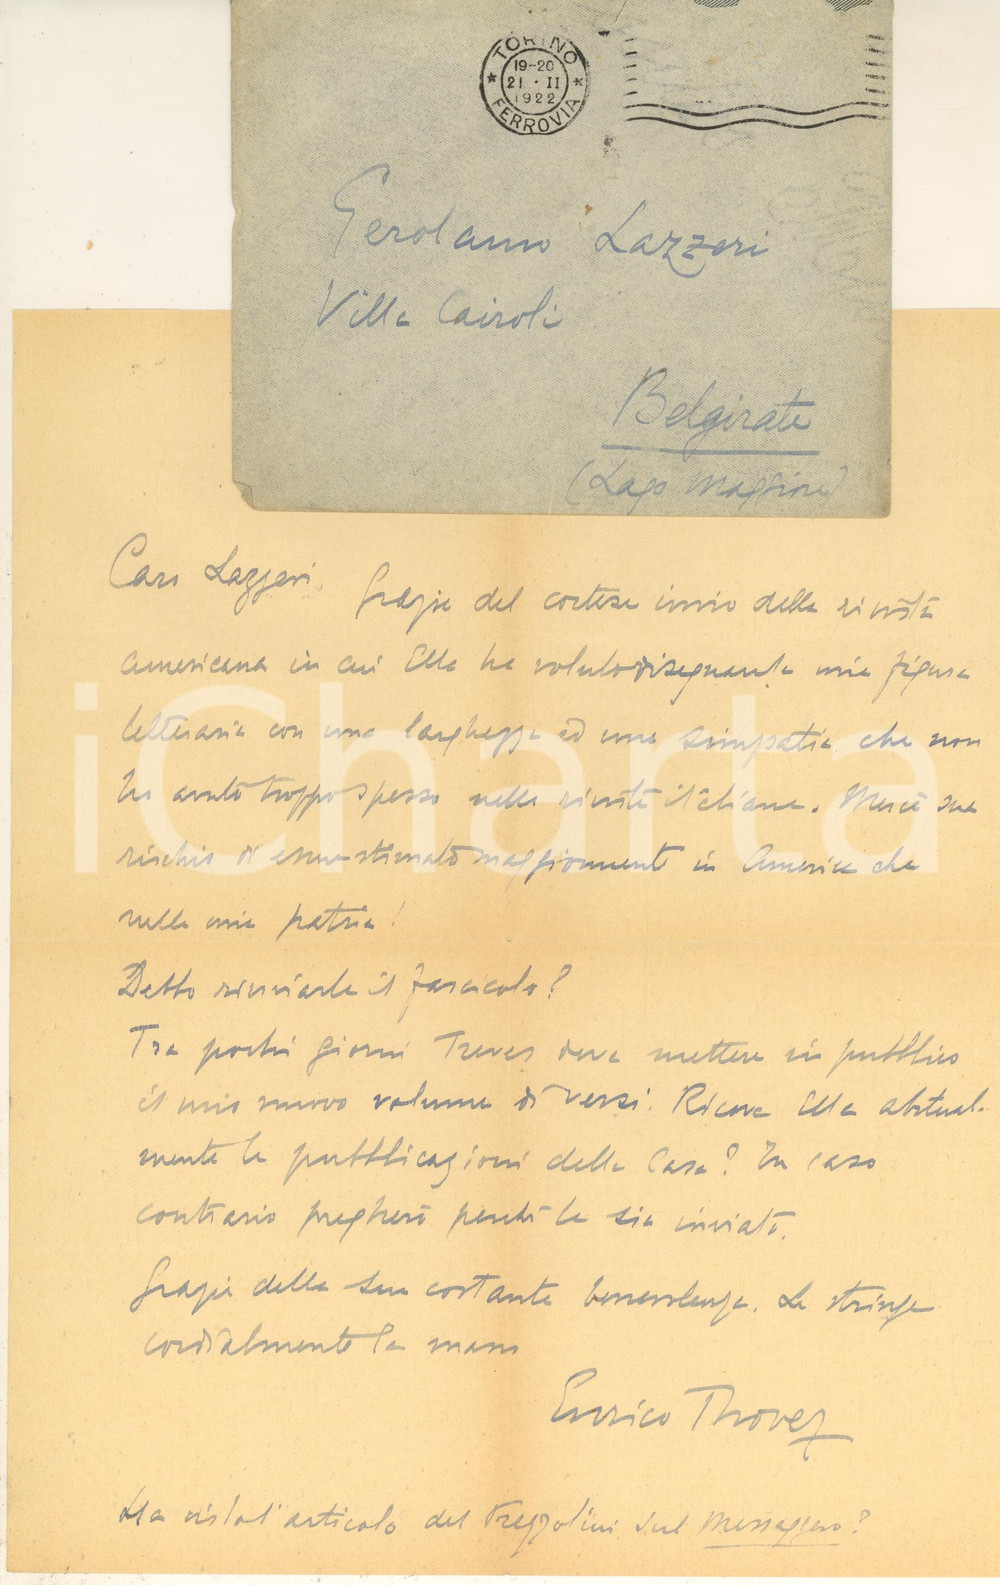 TORINO
19-20
21 · II
1922
FERROVIA
Gerolamo Lazzeri
Villa Cairoli
Belgirate
(Lago Maggiore)
Caro Lazzeri,
Grazie del cortese invio della rivista
americana in cui Ella ha voluto disegnare la mia figura
letteraria con una larghezza ed una simpatia che non
ho avuto troppo spesso nelle riviste italiane. Mercè sua
rischio di essere stimato maggiormente in America che
nella mia patria!
Debbo rinviarle il fascicolo?
Tra pochi giorni Treves deve mettere in pubblico
il mio nuovo volume di versi. Riceve Ella abitual-
mente le pubblicazioni della Casa? In caso
contrario pregherò perchè le sia inviato.
Grazie della sua costante benevolenza. Le stringe
cordialmente la mano
Enrico Thovez
Ha visto l'articolo del Prezzolini sul Messaggero?
iCharta